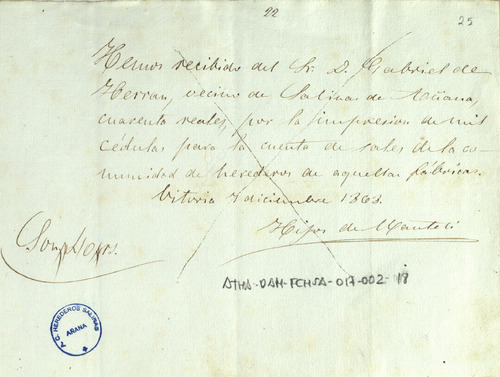 22
25
Hemos recibido del Sr. D. Gabriel de
Herran, vecino de Salinas de Añana,
cuarenta reales, por la impresion de mil
cédulas para la cuenta de sales de la co-
munidad de herederos de aquellas fábricas.
Vitoria 7 diciembre 1863.
Hijos de Manteli
Son
ATHA-DAH-FCHSA-017-002-18
A.C. HEREDEROS SALINAS
AÑANA